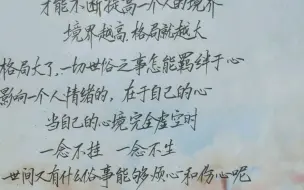 才能不断提高一个人的境界
境界越高,格局就越大
格局大了,一切世俗之事怎能羁绊于心
影响一个人情绪的,在于自己的心
当自己的心境完全虚空时
一念不挂 一念不生
世间又有什么俗事能够烦心和伤心呢